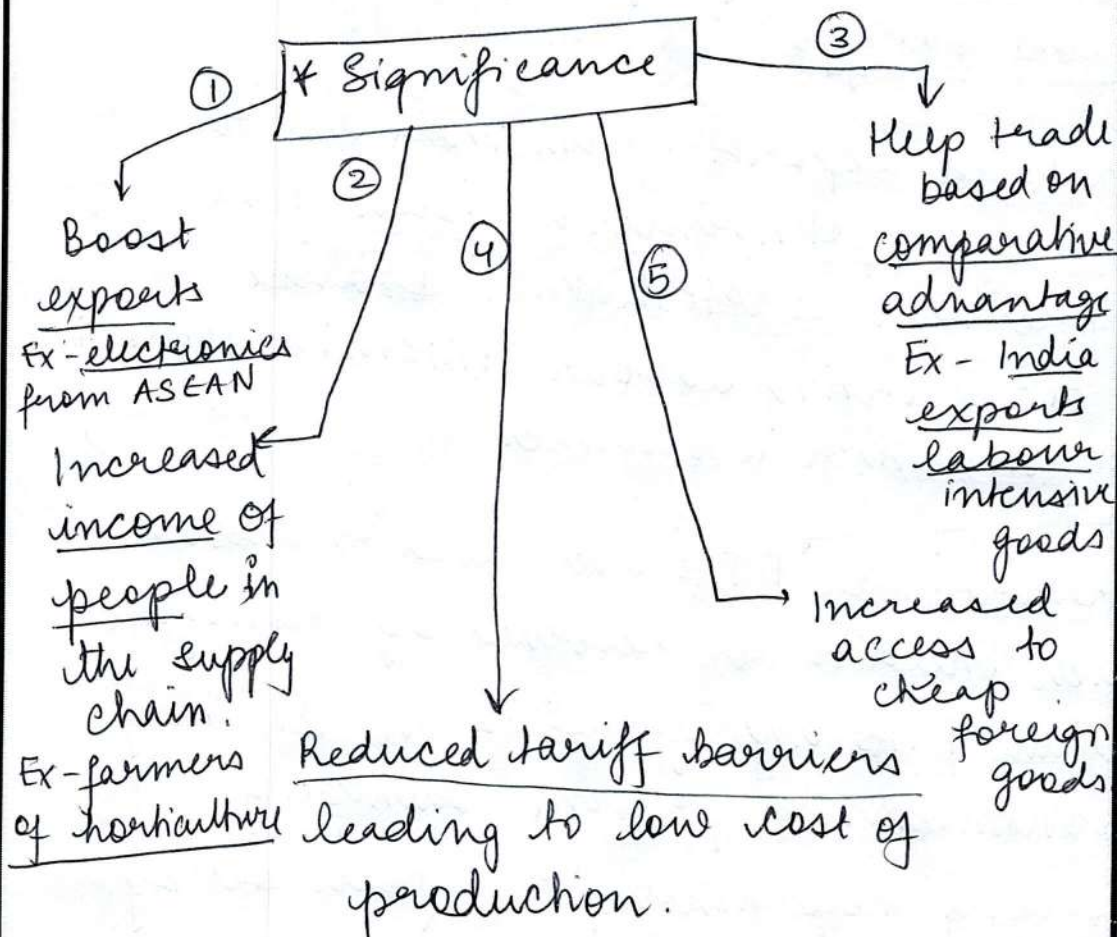 * Significance
①
Boost
exports
Ex - electronics
from ASEAN
②
Increased
income of
people in
the supply
chain.
Ex - farmers
of horticulture
③
Help trade
based on
comparative
advantage
Ex - India
exports
labour
intensive
goods
④
Reduced tariff barriers
leading to low cost of
production.
⑤
Increased
access to
cheap
foreign
goods